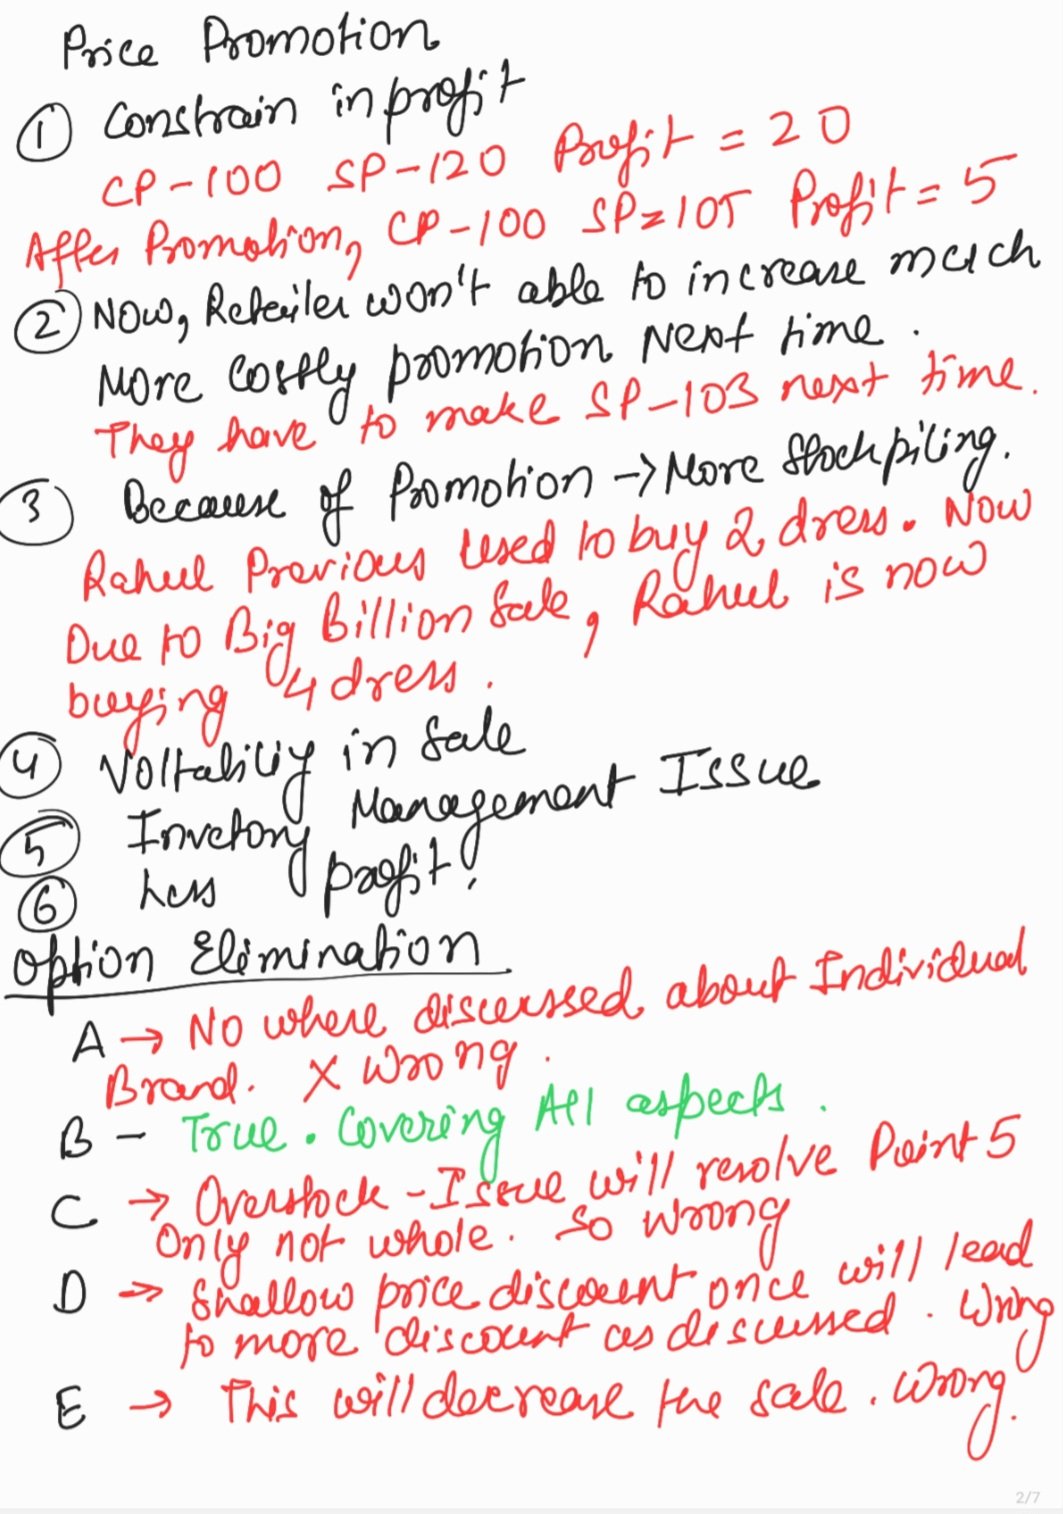 Price Promotion
① Constrain in profit
CP-100 SP-120 Profit = 20
After Promotion, CP-100 SP=105 Profit = 5
② Now, Retailer won't able to increase much
More Costly promotion Next time.
They have to make SP-103 next time.
③ Because of Promotion → More Stockpiling.
Rahul Previous Used to buy 2 dress. Now
Due to Big Billion Sale, Rahul is now
buying 4 dress.
④ Voltability in Sale
⑤ Invetory Management Issue
⑥ Less profit!
Option Elimination
A → No where discussed about Individual
Brand. X Wrong.
B - True. Covering All aspects.
C → Overstock - Issue will resolve Point 5
Only not whole. So Wrong
D → Shallow price discount once will lead
to more discount as discussed. Wrong
E → This will decrease the sale. Wrong.
2/7